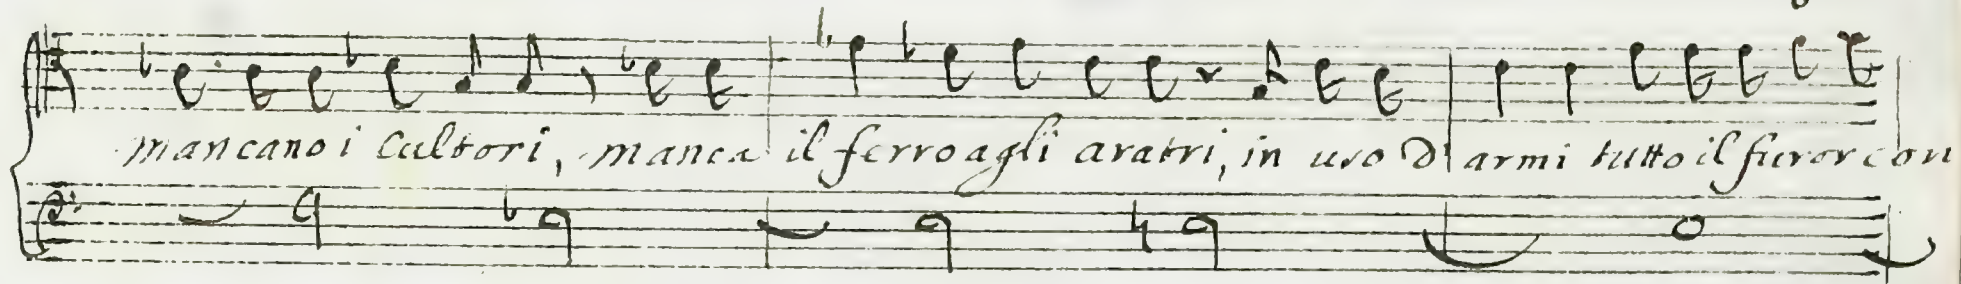 mancano i cultori, manca il ferro agli aratri, in uso d'armi tutto il furor con